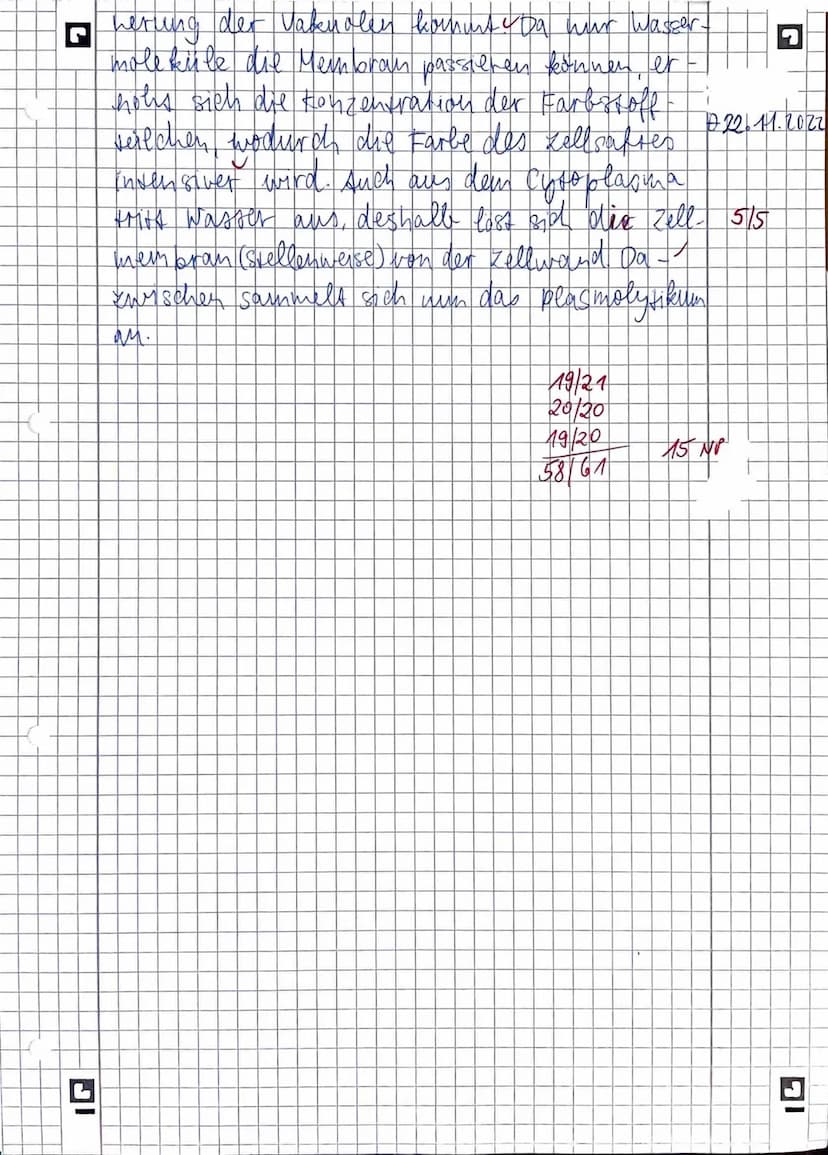 nerung der Vakuolen kommt. Da nur Wasser-
moleküle die Membran passieren können, er-
höht sich die Konzentration der Farbstoff-
teilchen, wodurch die Farbe des Zellsaftes
22.11.2022
intensiver wird. Auch aus dem Cytoplasma
tritt Wasser aus, deshalb löst sich die Zell-
5/5
membran (stellenweise) von der Zellwand. Da-
zwischen sammelt sich nun das Plasmolytikum
an.
19/21
20/20
19/20
58/61
15 NP